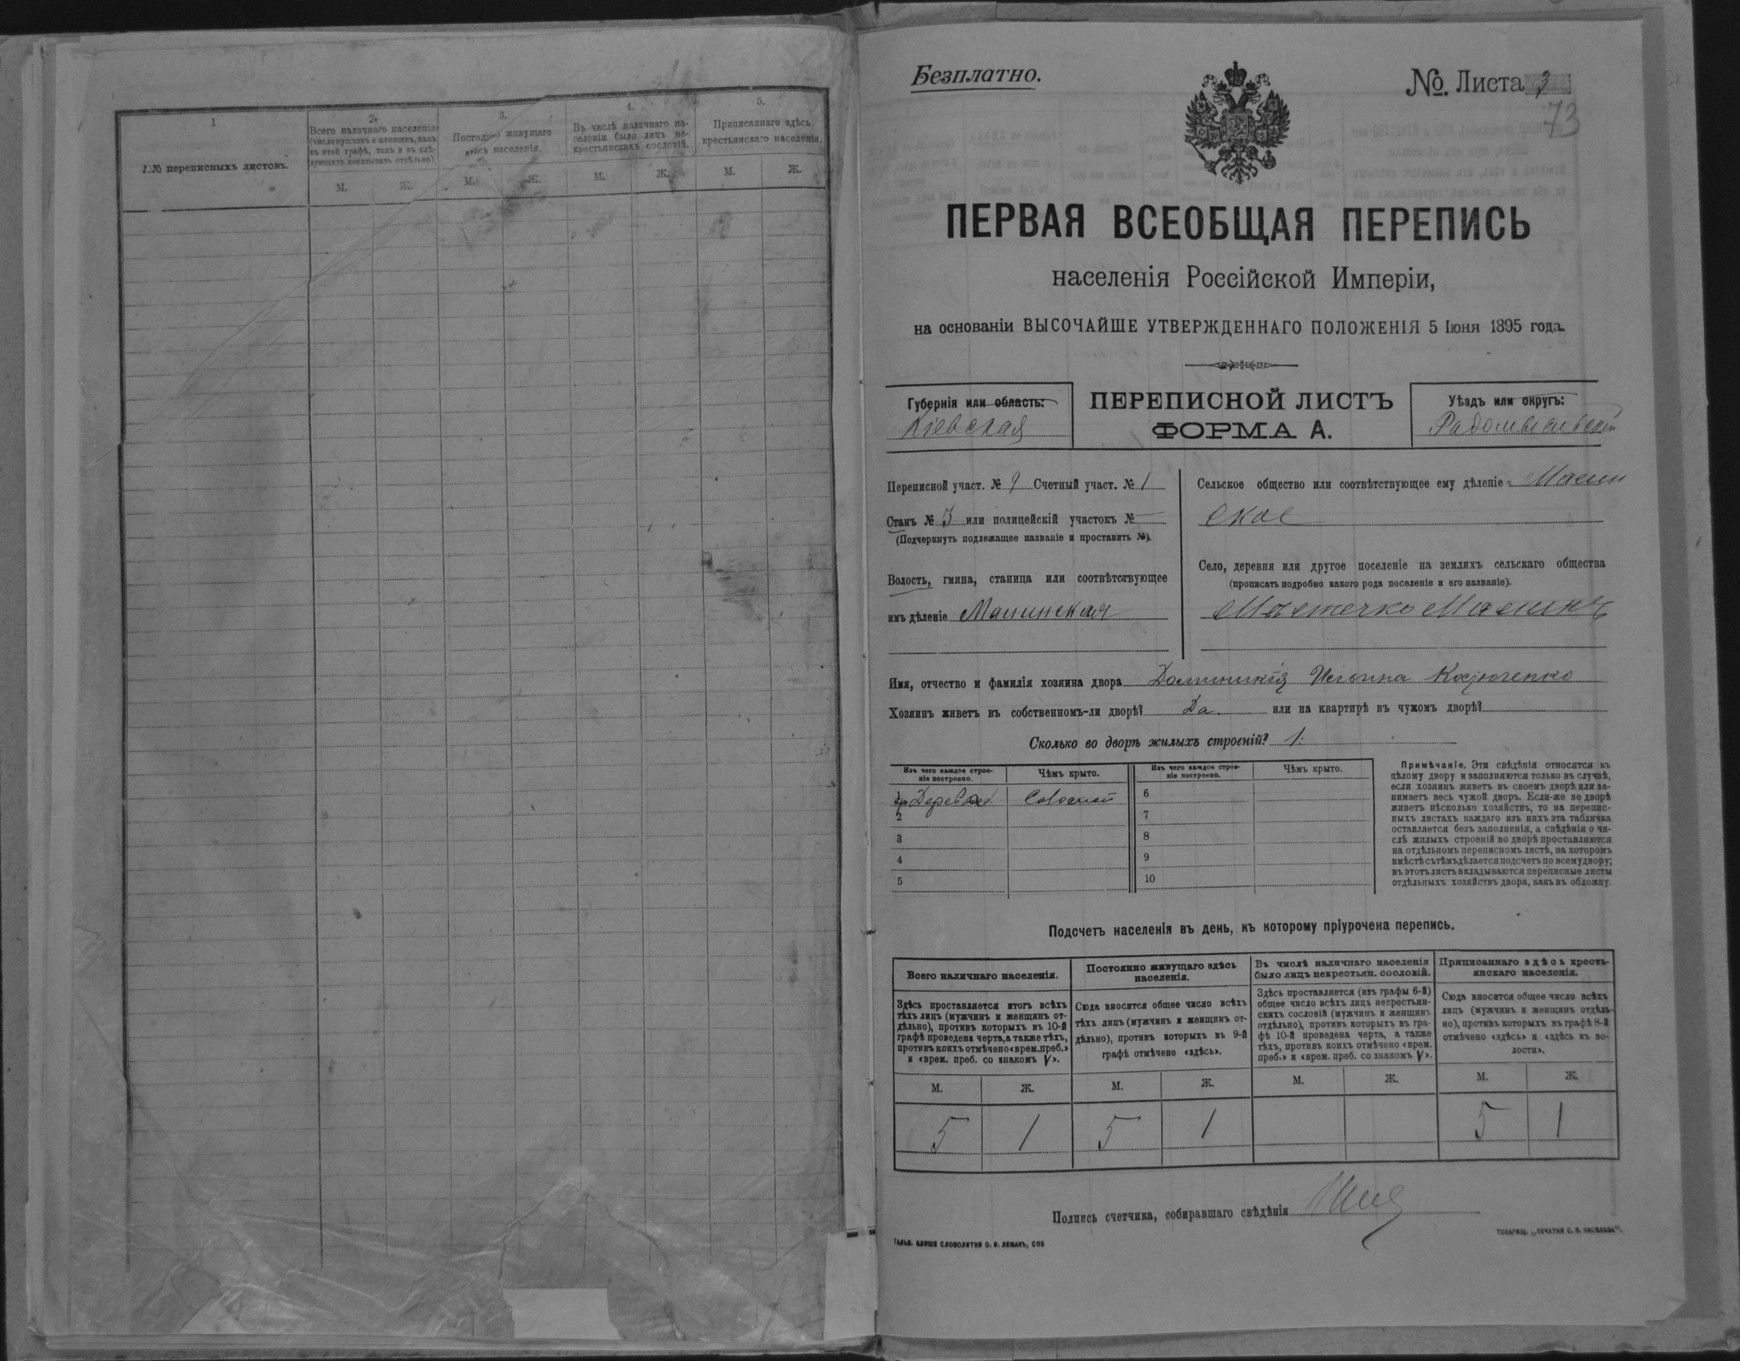 1
2.
3.
4.
5.
№№ переписныхъ листовъ.
Всего наличнаго населенія (число мужчинъ и женщинъ, какъ въ этой графѣ, такъ и въ слѣдующихъ показывать отдѣльно)
Постоянно живущаго здѣсь населенія.
Въ числѣ наличнаго населенія было лицъ некрестьянскихъ сословій.
Приписаннаго здѣсь крестьянскаго населенія.
М. Ж. М. Ж. М. Ж. М. Ж.
Безплатно.
№ Листа 3
73
ПЕРВАЯ ВСЕОБЩАЯ ПЕРЕПИСЬ
населенія Россійской Имперіи,
на основаніи ВЫСОЧАЙШЕ УТВЕРЖДЕННАГО ПОЛОЖЕНІЯ 5 Іюня 1895 года.
Губернія или область:
Кіевская
ПЕРЕПИСНОЙ ЛИСТЪ
ФОРМА А.
Уѣздъ или округъ:
Радомысльскій
Переписной участ. № 9 Счетный участ. № 1
Станъ № 3 или полицейскій участокъ № —
(Подчеркнуть подлежащее названіе и проставить №).
Волость, гмина, станица или соотвѣтствующее
имъ дѣленіе Малинская
Сельское общество или соотвѣтствующее ему дѣленіе Малин
ское
Село, деревня или другое поселеніе на земляхъ сельскаго общества
(прописать подробно какого рода поселеніе и его названіе).
Мѣстечко Малинъ
Имя, отчество и фамилія хозяина двора Костюченко
Хозяинъ живетъ въ собственномъ-ли дворѣ? Да. или на квартирѣ въ чужомъ дворѣ?
Сколько во дворѣ жилыхъ строеній? 1.
Изъ чего каждое строеніе построено.
Чѣмъ крыто.
Изъ чего каждое строеніе построено.
Чѣмъ крыто.
1 Дерева. Соломой 6
2 7
3 8
4 9
5 10
Примѣчаніе. Эти свѣдѣнія относятся къ
цѣлому двору и заполняются только въ случаѣ,
если хозяинъ живетъ въ своемъ дворѣ или за-
нимаетъ весь чужой дворъ. Если-же во дворѣ
живетъ нѣсколько хозяйствъ, то на перепис-
ныхъ листахъ каждаго изъ нихъ эта табличка
оставляется безъ заполненія, а свѣдѣнія о чи-
слѣ жилыхъ строеній во дворѣ проставляются
на отдѣльномъ переписномъ листѣ, на которомъ
вмѣстѣ съ тѣмъ дѣлается подсчетъ по всему двору;
въ этотъ листъ вкладываются переписные листы
отдѣльныхъ хозяйствъ двора, какъ въ обложку.
Подсчетъ населенія въ день, къ которому пріурочена перепись.
Всего наличнаго населенія.
Здѣсь проставляется итогъ всѣхъ
тѣхъ лицъ (мужчинъ и женщинъ от-
дѣльно), противъ которыхъ въ 10-й
графѣ проведена черта, а также тѣхъ,
противъ коихъ отмѣчено «врем. преб.»
и «врем. преб. со знакомъ V».
Постоянно живущаго здѣсь
населенія.
Сюда вносится общее число всѣхъ
тѣхъ лицъ (мужчинъ и женщинъ от-
дѣльно), противъ которыхъ въ 9-й
графѣ отмѣчено «здѣсь».
Въ числѣ наличнаго населенія
было лицъ некрестьян. сословій.
Здѣсь проставляется (изъ графы 6-й)
общее число всѣхъ лицъ некрестьян-
скихъ сословій (мужчинъ и женщинъ
отдѣльно), противъ которыхъ въ гра-
фѣ 10-й проведена черта, а также
тѣхъ, противъ коихъ отмѣчено «врем.
преб.» и «врем. преб. со знакомъ V».
Приписаннаго здѣсь кресть-
янскаго населенія.
Сюда вносится общее число всѣхъ
лицъ (мужчинъ и женщинъ отдѣль-
но), противъ которыхъ въ графѣ 8-й
отмѣчено «здѣсь» и «здѣсь въ во-
лости».
М. Ж. М. Ж. М. Ж. М. Ж.
5 1 5 1 5 1
Подпись счетчика, собиравшаго свѣдѣнія
ГАЛЬВ. КЛИШЕ СЛОВОЛИТНИ О. И. ЛЕМАНЪ, СПБ